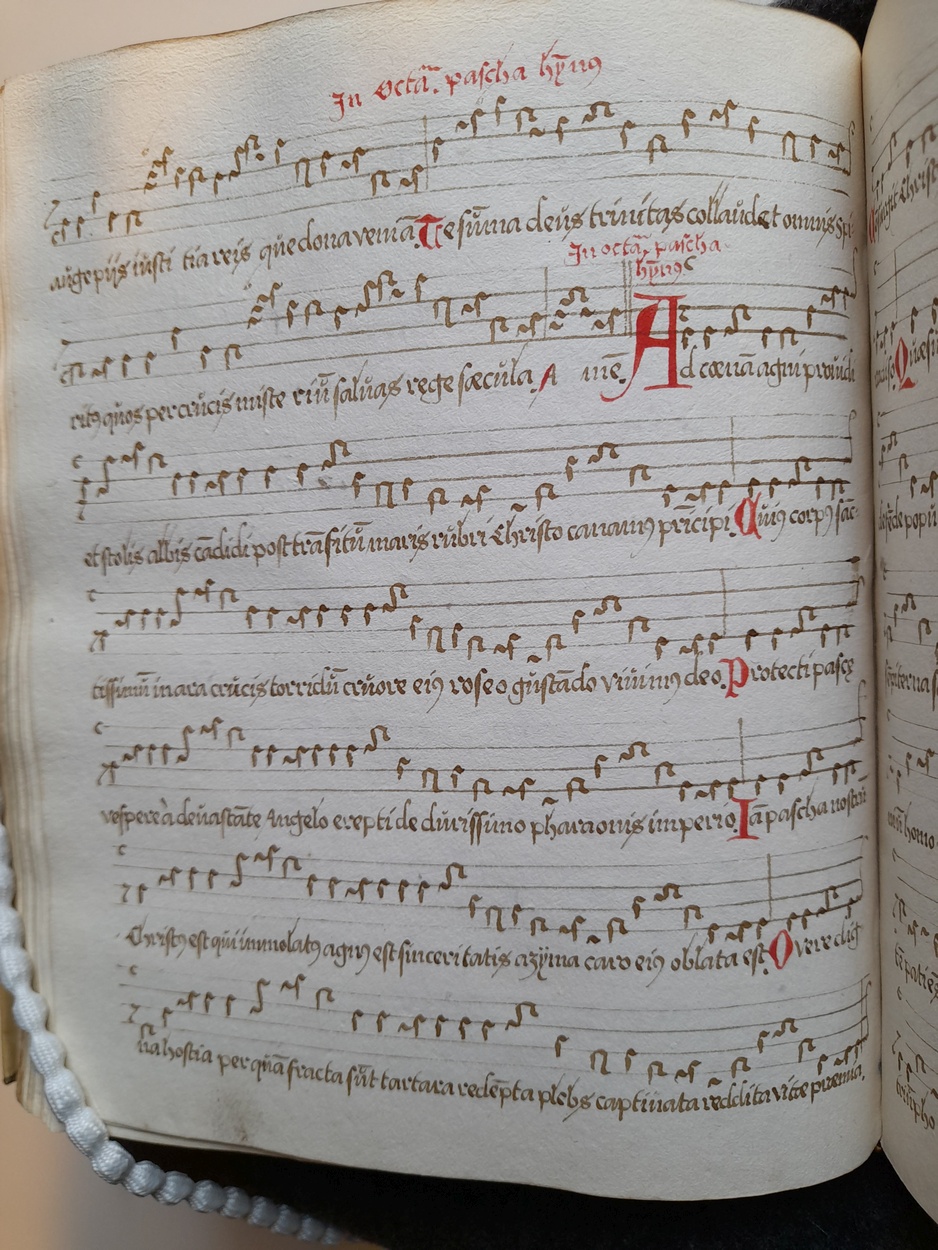 In Octā. pascha hȳnꝰ
auge pijs iusti tia reis que dona veniā. Te sūma deus trinitas collaudet omnis spi
In octā. pascha
hȳnꝰ
ritꝰ quos per crucis miste riū salvas rege sæcula. A mē. Ad cœnā agni providi
et stolis albis cādidi post trāsitū maris rubri Christo canamꝰ prīcipi. Cuiꝰ corpꝰ sāc-
tissimū in ara crucis torridū cruore eiꝰ roseo gustādo vivimꝰ deo. Protecti pascę
vespere à devastāte Angelo erepti de durissimo pharaonis imperio. Iā pascha nostrū
Christꝰ est qui immolatꝰ agnꝰ est sinceritatis azyma caro eiꝰ oblata est. O vere dig
na hostia per quā fracta sūt tartara redēpta plebs captivata reddita vitæ premia.